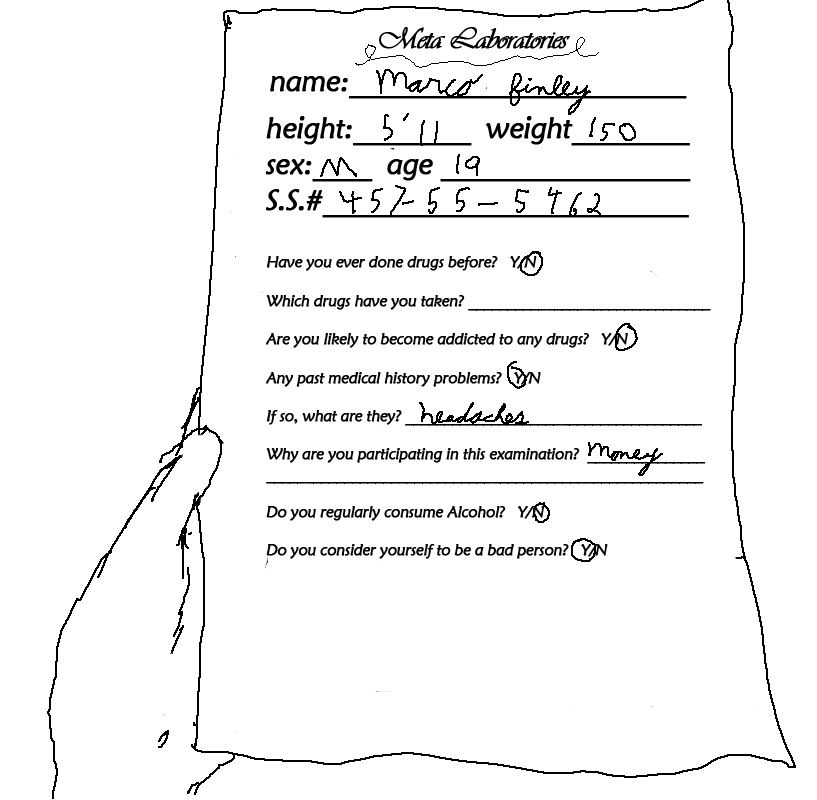 Meta Laboratories
name: Marco Finley
height: 5'11 weight 150
sex: M age 19
S.S.# 457-55-5462
Have you ever done drugs before? Y/N
Which drugs have you taken?
Are you likely to become addicted to any drugs? Y/N
Any past medical history problems? Y/N
If so, what are they? headaches
Why are you participating in this examination? Money
Do you regularly consume Alcohol? Y/N
Do you consider yourself to be a bad person? Y/N